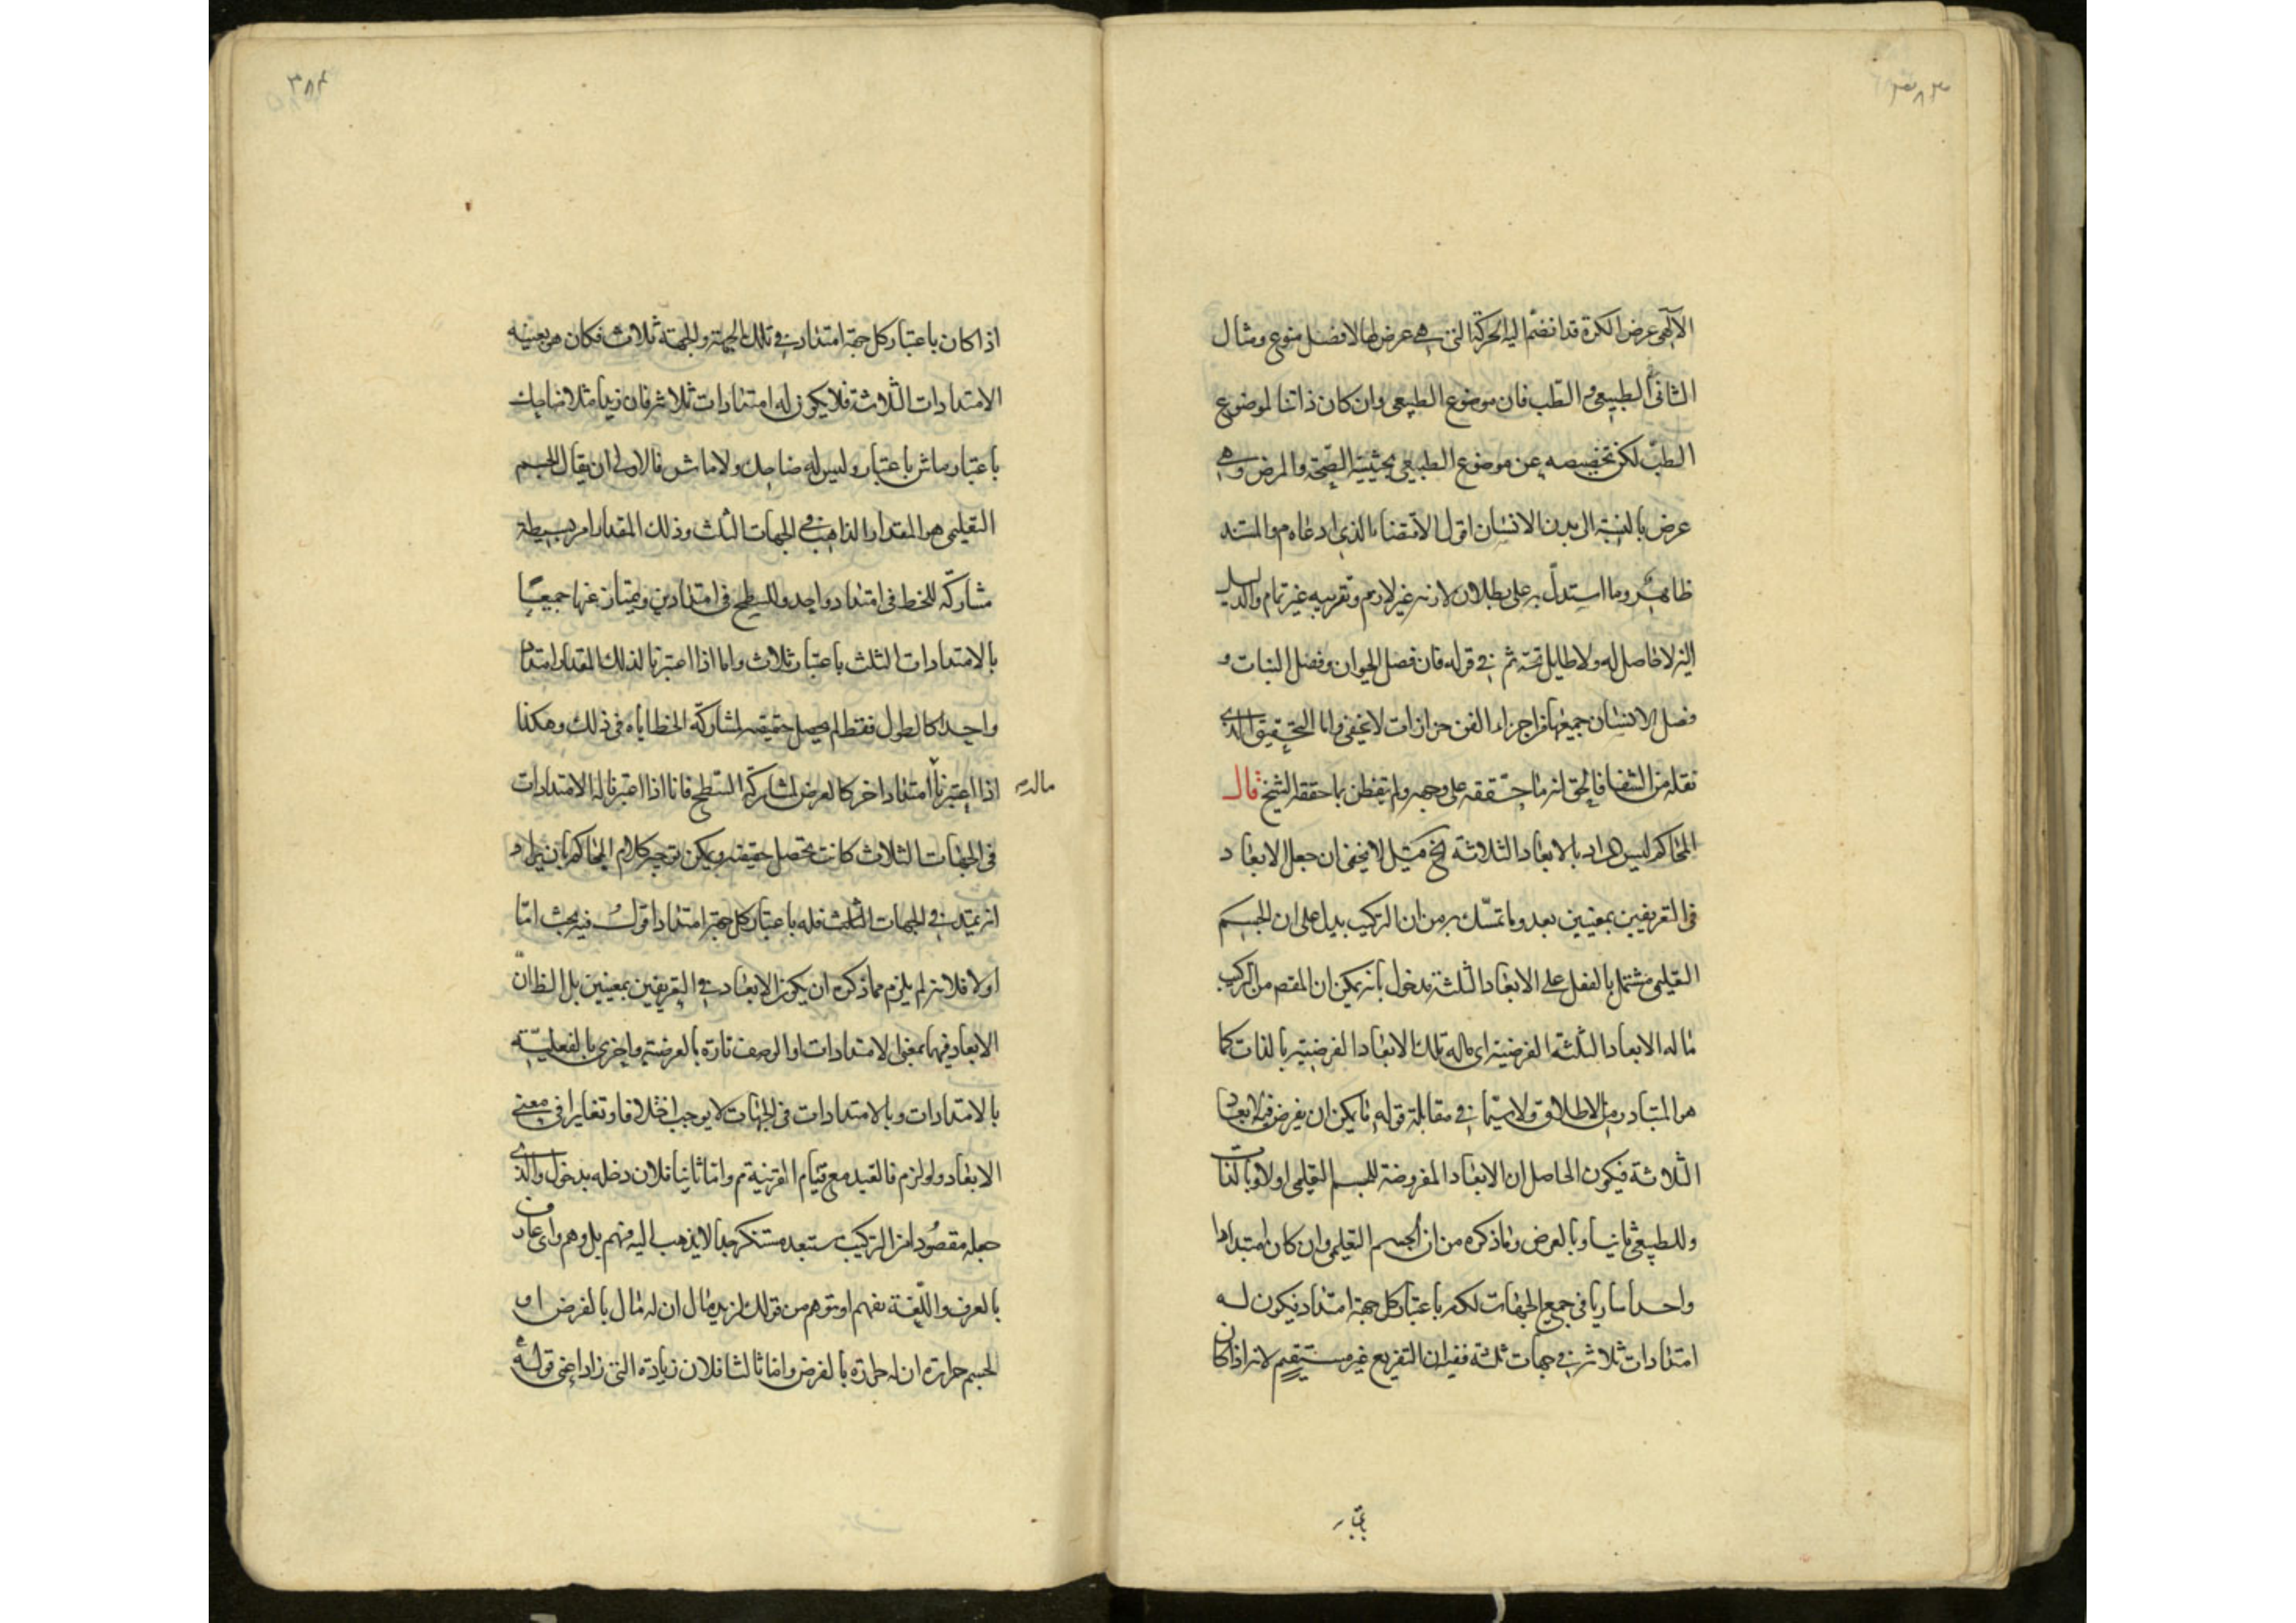 ٣٨٣
الالهى عرض الكرة قد انضم اليه الحركة التى هى عرض لها لا فصل منوع ومثال
الثانى الطبيعى والطب فان موضوع الطبيعى وان كان ذاتيا لموضوع
الطب لكن تخصيصه عن موضوع الطبيعى بحيثية الصحة والمرض وهى
عرض بالنسبة الى بدن الانسان اقول الاقتضاء الذى ادعاه م والسند
ظاهر وما استدل به على بطلان لازمه غير لازم وتقريبه غير تمام والدليل
انه لا حاصل له ولا طايل تحته ثم فى قوله فان فصل الحيوان وفصل النبات و
فصل الانسان جميعها من اجزاء الفن حزازات لا تخفى واما التحقيق الذى
نقله من الشفا فالحق انه ما حققه على وجهه ولم يتفطن بما حققه الشيخ قال
المحاكم ليس المراد بالابعاد الثلاثة الخ قيل لا يخفى ان جعل الابعاد
فى التعريفين بمعنيين بعد وما تمسك به من ان التركيب يدل على ان الجسم
التعليمى مشتمل بالفعل على الابعاد الثلثة مدخول بانه يمكن ان المقصد من التركيب
ما له الابعاد الثلثة الفرضية اى ماله تلك الابعاد الفرضية بالذات كما
هو المتبادر من الاطلاق ولا سيما فى مقابلة قوله ما يمكن ان يفرض فيه الابعاد
الثلاثة فيكون الحاصل ان الابعاد المفروضة للجسم التعليمى اولا وبالذات
وللطبيعى ثانيا وبالعرض وما ذكره من ان الجسم التعليمى وان كان امتدادا
واحدا ساريا فى جميع الجهات لكنه باعتبار كل جهة امتداد فيكون له
امتدادات ثلاثة فى جهات ثلثة ففيه ان التفريع غير مستقيم لانه اذا كان
باعتبار
٣٨٤
اذا كان باعتبار كل جهة امتداد فى تلك الجهة والجهة ثلاث فكان هو بعينه
الامتدادات الثلاثة فلا يكون له امتدادات ثلاثة فان زيدا مثلا ضاحك
باعتبار ماش باعتبار وليس له ضاحك ولا ماش فالاولى ان يقال الجسم
التعليمى هو المقدار الذاهب فى الجهات الثلث وذلك المقدار امر بسيطة
مشاركة للخط فى امتداد واحد وللسطح فى امتدادين ويمتاز عنها جميعا
بالامتدادات الثلث باعتبار ثلاث واما اذا اعتبرنا لذلك المقدار امتدادا
واحدا كالطول فقط لم يحصل حقيقته لمشاركة الخط اياه فى ذلك وهكذا
اذا اعتبرنا امتدادا اخر كالعرض لمشاركة السطح فانا اذا اعتبرنا له الامتدادات
فى الجهات الثلاث كانت يحصل حقيقته ويمكن توجيه كلام المحاكم بان يراد
انه يمتد فى الجهات الثلث فله باعتبار كل جهة امتداد اقول فيه بحث اما
اولا فلانه لم يلزم مما ذكره ان يكون الابعاد فى التعريفين بمعنيين بل الظ ان
الابعاد فيهما بمعنى الامتدادات او الوصف تارة بالعرضية واخرى بالفعلية
بالامتدادات وبالامتدادات فى الجهات لا يوجب اختلافا وتغايرا فى معنى
الابعاد ولو لزم فالقيد مع قيام القرينة تم واما ثانيا فلان دخله مدخول والذى
جعله مقصودا من التركيب مستبعد مستنكر جدا لا يذهب اليه فهم بل وهم واى عارف
بالعرف واللغة يفهم او يتوهم من قولك لزيد مال ان له مال بالفرض او
لجسم حرارة ان له حرارة بالفرض واما ثالثا فلان زيادة التى زاد اعنى قوله